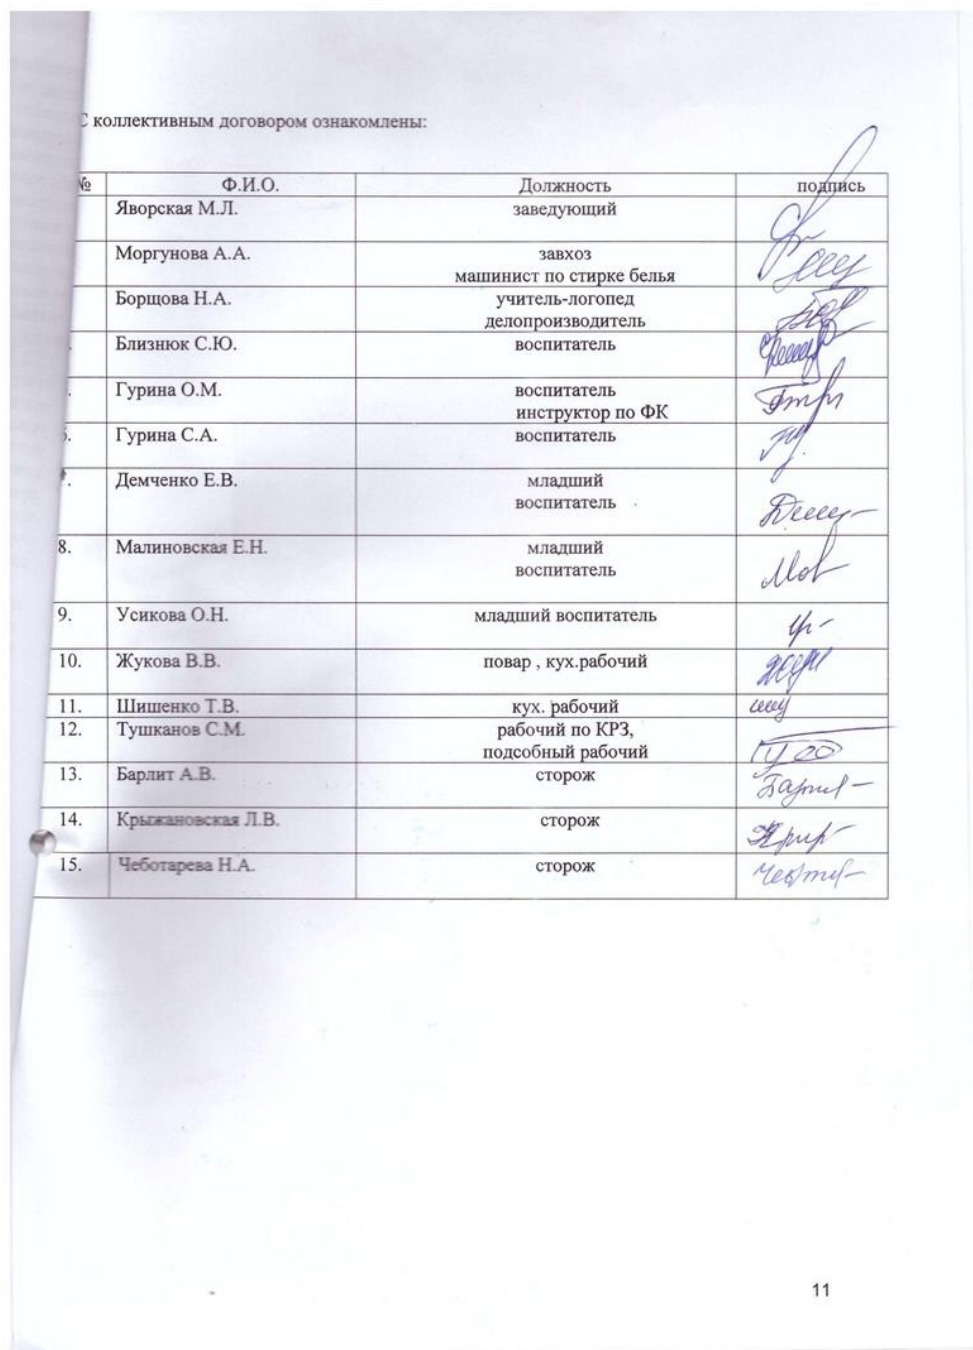 С коллективным договором ознакомлены:
№ Ф.И.О. Должность подпись
Яворская М.Л. заведующий
Моргунова А.А. завхоз
машинист по стирке белья
Борщова Н.А. учитель-логопед
делопроизводитель
Близнюк С.Ю. воспитатель
Гурина О.М. воспитатель
инструктор по ФК
Гурина С.А. воспитатель
Демченко Е.В. младший
воспитатель
8. Малиновская Е.Н. младший
воспитатель
9. Усикова О.Н. младший воспитатель
10. Жукова В.В. повар , кух.рабочий
11. Шишенко Т.В. кух. рабочий
12. Тушканов С.М. рабочий по КРЗ,
подсобный рабочий
13. Барлит А.В. сторож
14. Крыжановская Л.В. сторож
15. Чеботарева Н.А. сторож
11